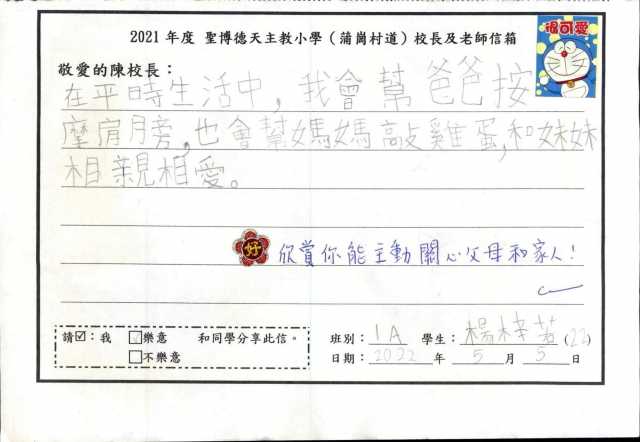 2021 年度 聖博德天主教小學(蒲崗村道)校長及老師信箱
很可愛
敬愛的陳校長：
在平時生活中，我會幫爸爸按
摩肩膀，也會幫媽媽敲雞蛋，和妹妹
相親相愛。
好 欣賞你能主動關心父母和家人！
請☑：我 □樂意 和同學分享此信。
□不樂意
班別： 1A 學生： 楊梓 (22)
日期： 2022 年 5 月 5 日